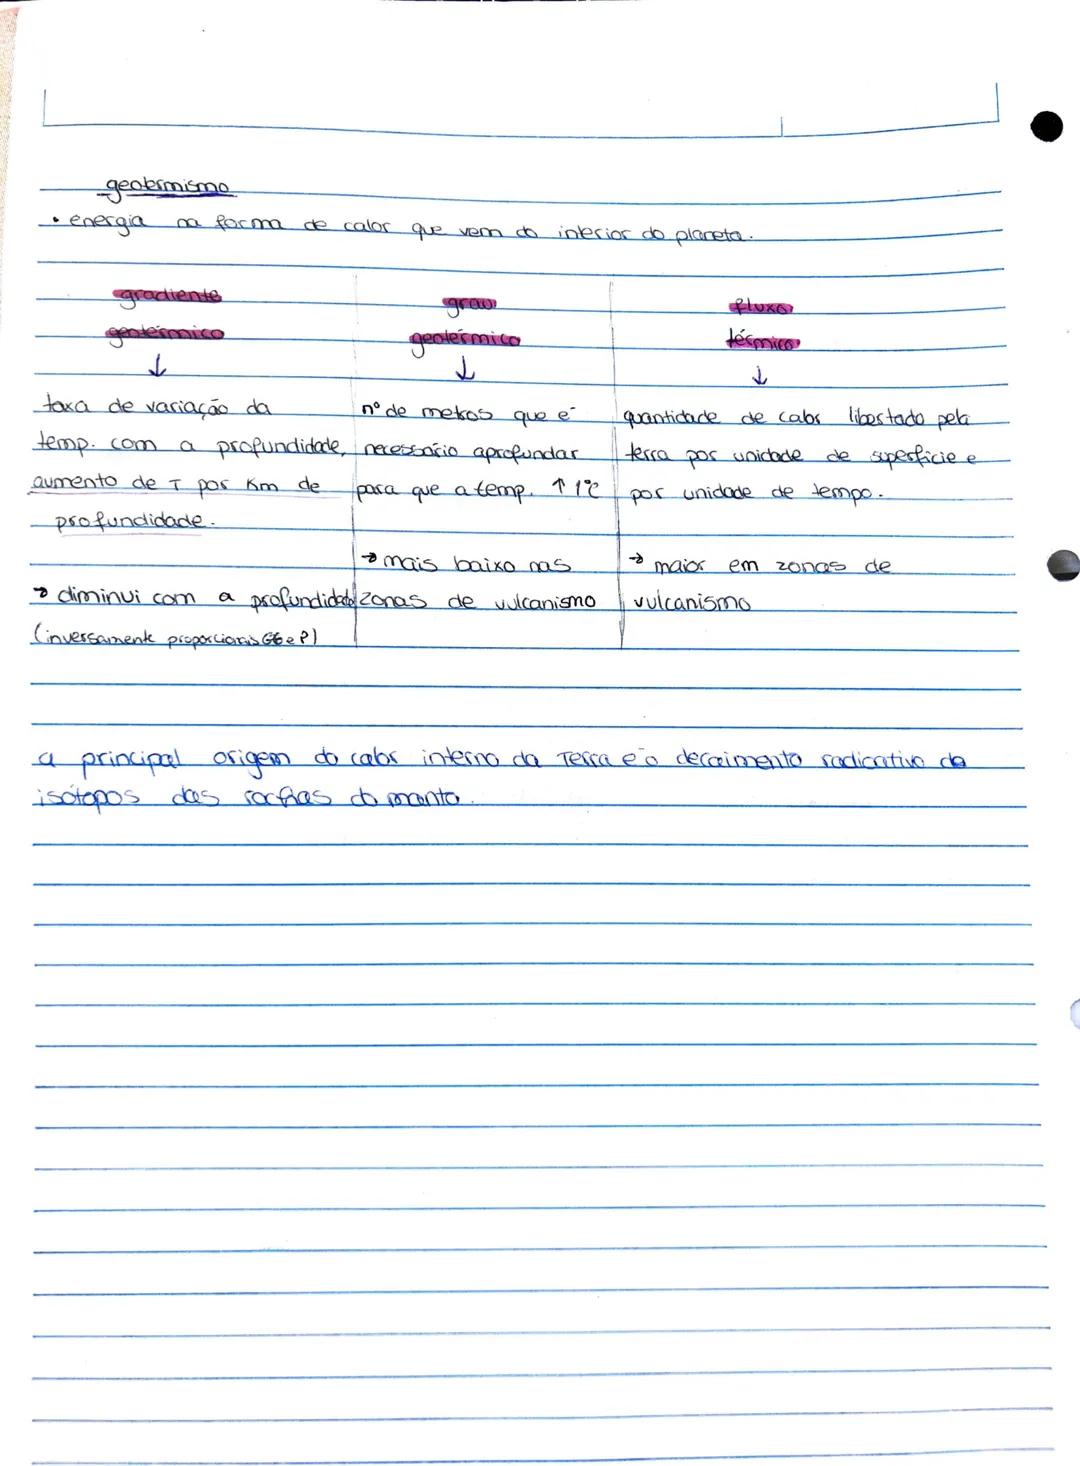 geotermismo
• energia na forma de calor que vem do interior do planeta.
gradiente
geotérmico
↓
taxa de variação da
temp. com a profundidade,
aumento de T por Km de
profundidade.
→ diminui com a profundidade
(inversamente proporcionais GG e P)
grau
geotérmico
↓
nº de metros que é
necessário aprofundar
para que a temp. ↑ 1ºC
→ mais baixo nas
zonas de vulcanismo
fluxo
térmico
↓
quantidade de calor libertado pela
terra por unidade de superfície e
por unidade de tempo.
→ maior em zonas de
vulcanismo
a principal origem do calor interno da Terra é o decaimento radicativo de
isótopos das rochas do manto.